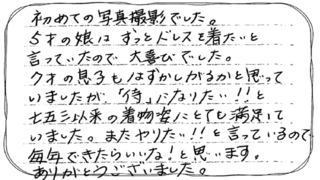 初めての写真撮影でした。
5才の娘は ずっとドレスを着たいと
言っていたので 大喜びでした。
7才の息子も はずかしがるかと思って
いましたが、「侍」になりたい!!と
七五三以来の着物姿にとても満足して
いました。またやりたい!!と言っているので
毎年できたらいいな!と思います。
ありがとうございました。